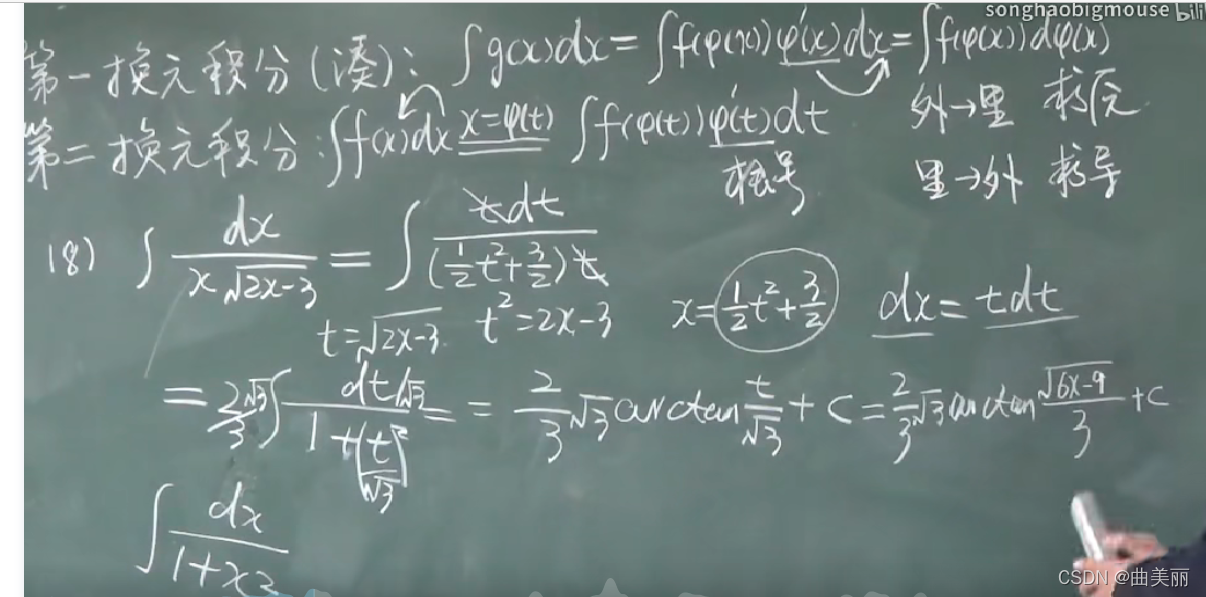 songhaobigmouse bili
第一换元积分(凑): ∫g(x)dx = ∫f(φ(x))φ'(x)dx = ∫f(φ(x))dφ(x)
外→里 求原
第二换元积分:∫f(x)dx x=φ(t) ∫f(φ(t))φ'(t)dt
根号
里→外 求导
18) ∫ dx/(x√(2x-3)) = ∫ tdt/((1/2 t²+3/2)t)
t=√(2x-3) t²=2x-3 x=1/2 t²+3/2 dx=tdt
= 2√3/3 ∫ dt/√3 / (1+(t/√3)²) = = 2/3 √3 arctan t/√3 + C = 2/3 √3 arctan √(6x-9)/3 + C
∫ dx/(1+x²
CSDN @曲美丽